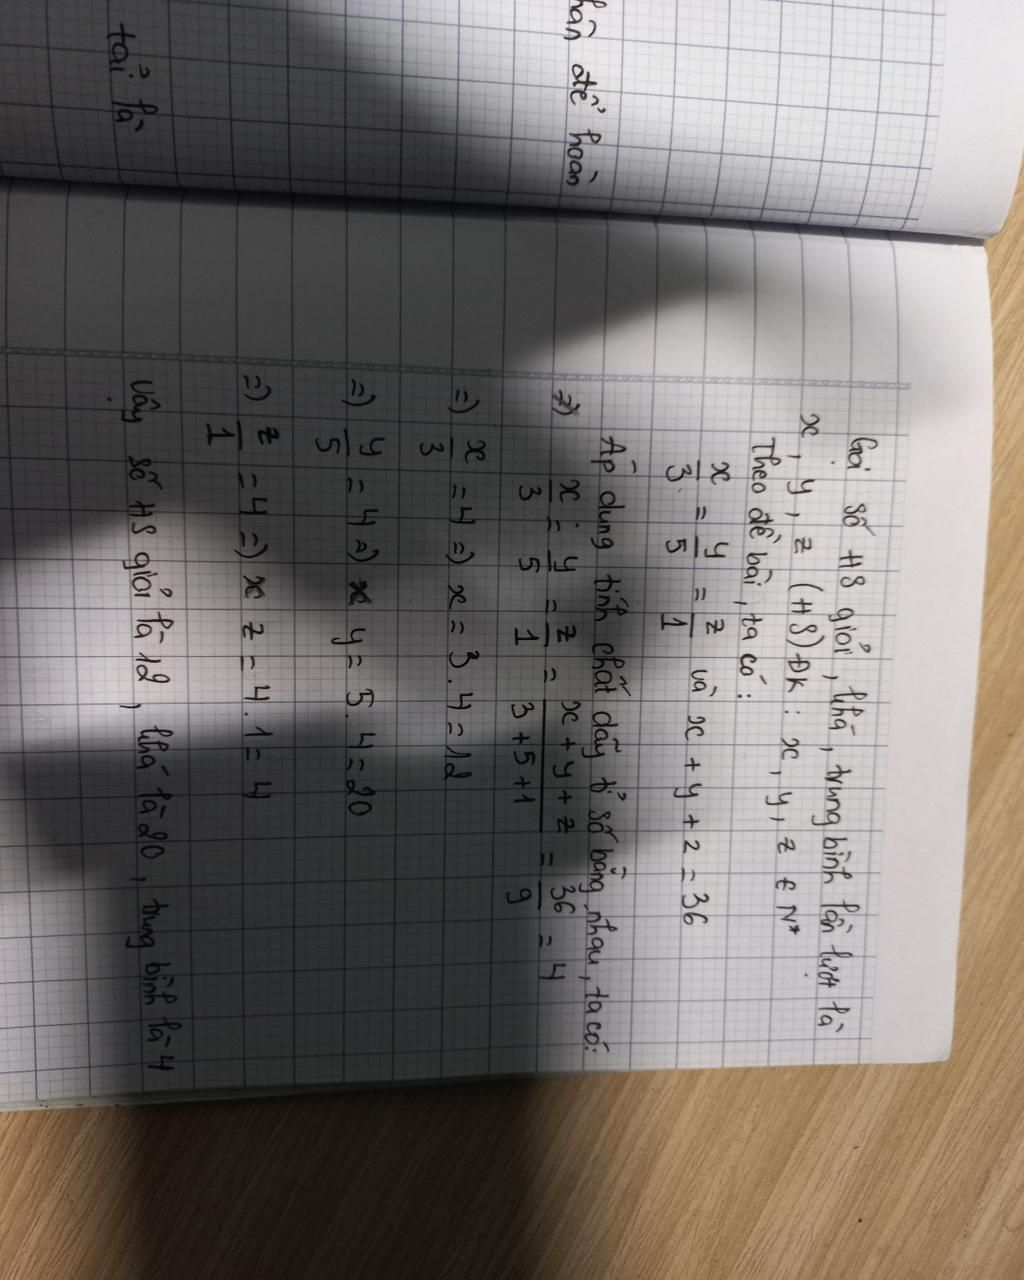 hần để hoàn
tải là
Gọi số HS giỏi, khá, trung bình lần lượt là
x, y, z (HS) ĐK: x, y, z ∈ N*
Theo đề bài, ta có:
x/3 = y/5 = z/1 và x + y + 2 = 36
Áp dụng tính chất dãy tỉ số bằng nhau, ta có:
x/3 = y/5 = z/1 = (x + y + z)/(3 + 5 + 1) = 36/9 = 4
=) x/3 = 4 =) x = 3 . 4 = 12
=) y/5 = 4 =) y = 5 . 4 = 20
=) z/1 = 4 =) z = 4 . 1 = 4
Vậy số HS giỏi là 12, khá là 20, trung bình là 4